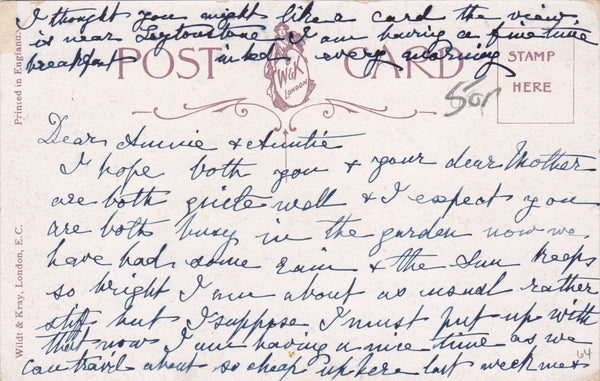 I thought you might like a card the view
is near Leytonstone I am having a fine time
breakfast in bed every morning
POST CARD
W&K
LONDON
STAMP
HERE
Printed in England.
Wildt & Kray, London, E.C.
Dear Annie & Auntie
I hope both you & your dear Mother
are both quiete well & I expect you
are both busy in the garden now we
have had some rain & the Sun keeps
so bright I am about as usual rather
stiff but I suppose I must put up with
that now I am having a nice time as we
can travil about so cheap up here last week
64